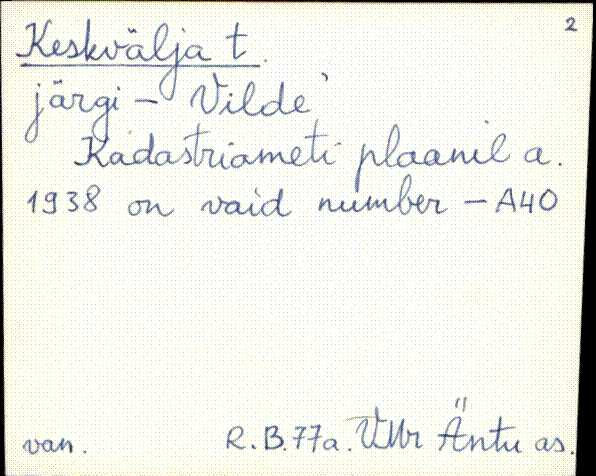 2
Keskvälja t.
järgi – Vilde'
Kadastriameti plaanil a.
1938 on vaid number – A40
van. R.B.77a. VMr Äntu as.